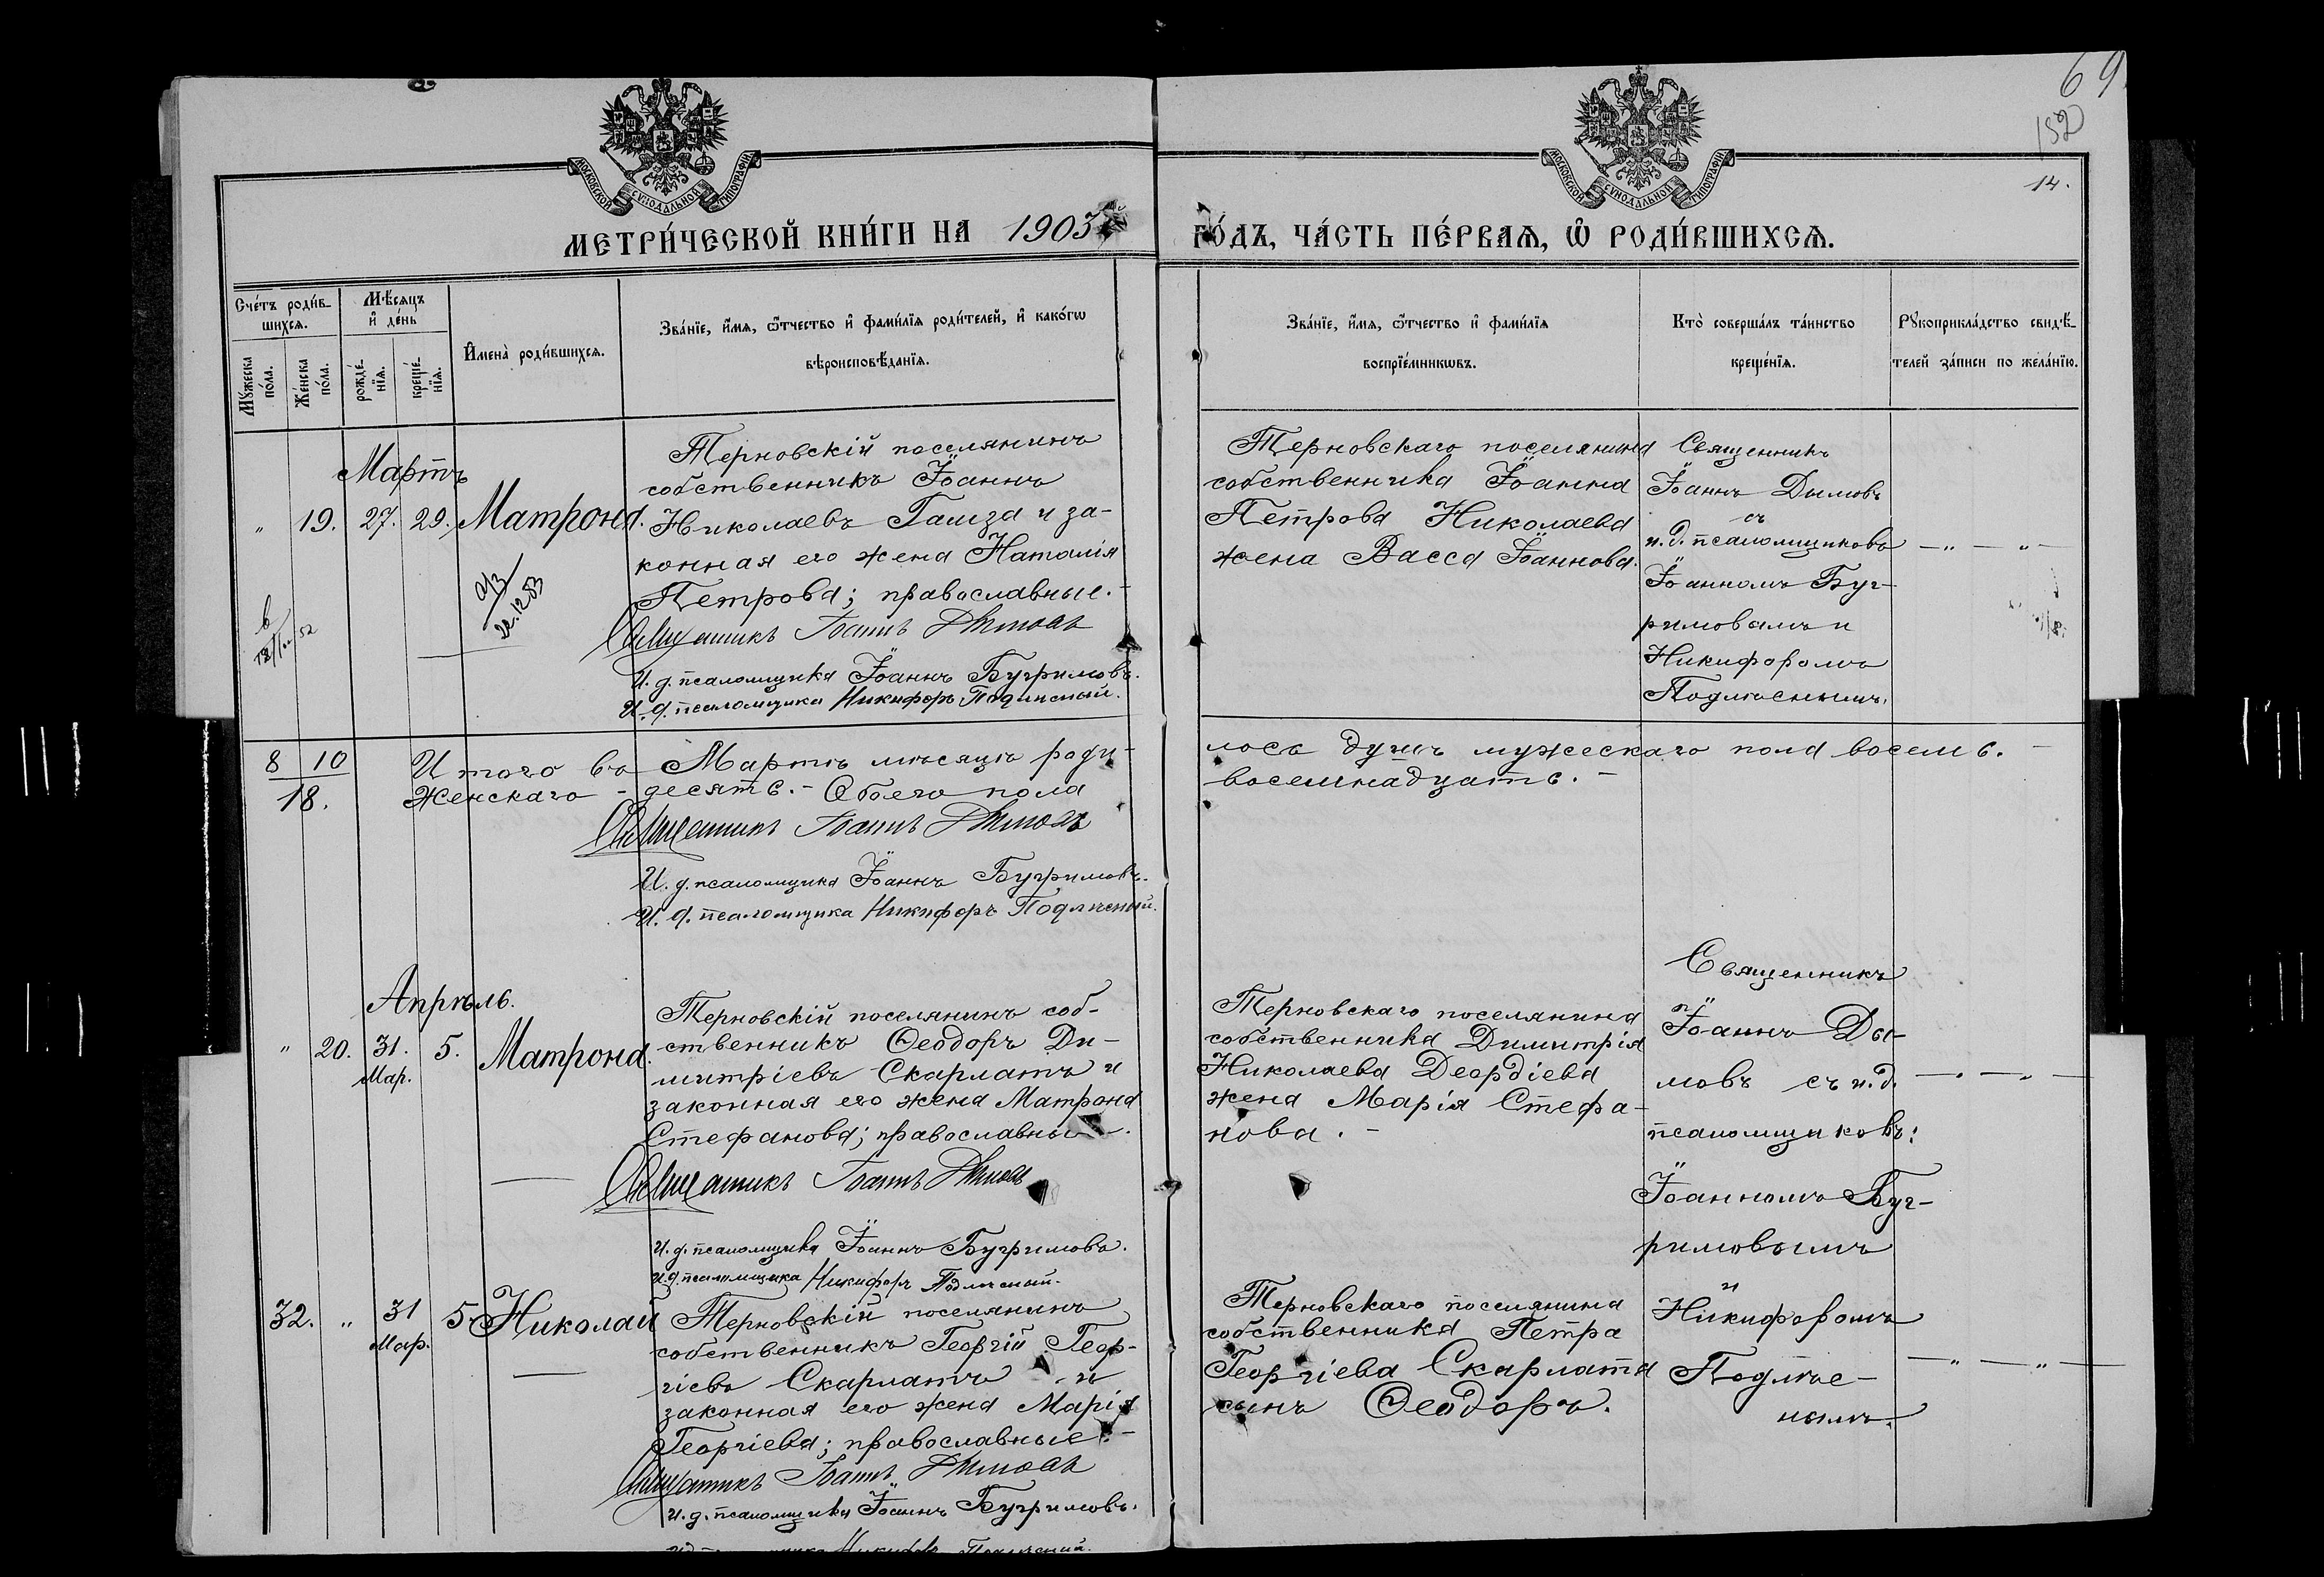 69
152
14.
МОСКОВСКОЙ СУНОДАЛЬНОЙ ТИПОГРАФІИ
МОСКОВСКОЙ СУНОДАЛЬНОЙ ТИПОГРАФІИ
МЕТРИ́ЧЕСКОЙ КНИ́ГИ НА 1903
ГО́ДЪ, ЧА́СТЬ ПЕ́РВАЯ, Ѡ РОДИ́ВШИХСЯ.
Сче́тъ роди́в-
шихся.
Мѣ́сяцъ
и҆ де́нь
Му́жеска по́ла.
Же́нска по́ла.
рожде́-нїя.
креще́-нїя.
И҆мена̀ роди́вшихся.
Зва́нїе, и҆́мя, ѻ҆́тчество и҆ фами́лїя роди́телей, и҆ како́гѡ
вѣроисповѣ́данїя.
Зва́нїе, и҆́мя, ѻ҆́тчество и҆ фами́лїя
воспрїе́мникѡвъ.
Кто̀ соверша́лъ та́инство
креще́нїя.
Рꙋкоприкла́дство свидѣ́-
телей за́писи по жела́нїю.
Мартъ
" 19. 27. 29. Матрона.
Терновскій поселянинъ
собственникъ Іоаннъ
Николаевъ Гаиза и за-
конная его жена Наталія
Петрова; православные.-
Священникъ Іоаннъ Дымовъ
И. д. псаломщика Іоаннъ Бугримовъ.
И. д. псаломщика Никифоръ Подлѣсный.
Терновскаго поселянина
собственника Іоанна
Петрова Николаева
жена Васса Іоаннова.
Священникъ
Іоаннъ Дымовъ
съ
и. д. псаломщиковъ
Іоанномъ Буг-
римовымъ и
Никифоромъ
Подлѣснымъ.
— " — " —
22.12.83
8 10
18.
Итого въ Мартѣ мѣсяцѣ роди-
лось душъ мужескаго пола восемь. -
Женскаго - десять. - Обоего пола
восемнадцать. -
Священникъ Іоаннъ Дымовъ
И. д. псаломщика Іоаннъ Бугримовъ.
И. д. псаломщика Никифоръ Подлѣсный.
Апрѣль.
" 20. 31. Мар. 5. Матрона.
Терновскій поселянинъ соб-
ственникъ Ѳеодоръ Ди-
митріевъ Скарлатъ и
законная его жена Матрона
Стефанова; православные.
Священникъ Іоаннъ Дымовъ
И. д. псаломщика Іоаннъ Бугримовъ.
И. д. псаломщика Никифоръ Подлѣсный.
Терновскаго поселянина
собственника Димитрія
Николаева Деордіева
жена Марія Стефа-
нова. -
Священникъ
Іоаннъ Ды-
мовъ съ и. д.
псаломщиковъ:
Іоанномъ Буг-
римовымъ
и
Никифоромъ
Подлѣс-
нымъ.
32. " 31 Мар. 5. Николай
Терновскій поселянинъ
собственникъ Георгій Геор-
гіевъ Скарлатъ и
законная его жена Марія
Георгіева; православные. -
Священникъ Іоаннъ Дымовъ
И. д. псаломщика Іоаннъ Бугримовъ.
Никифоръ Подлѣсный.
Терновскаго поселянина
собственника Петра
Георгіева Скарлата
сынъ Ѳеодоръ.
— " — " —